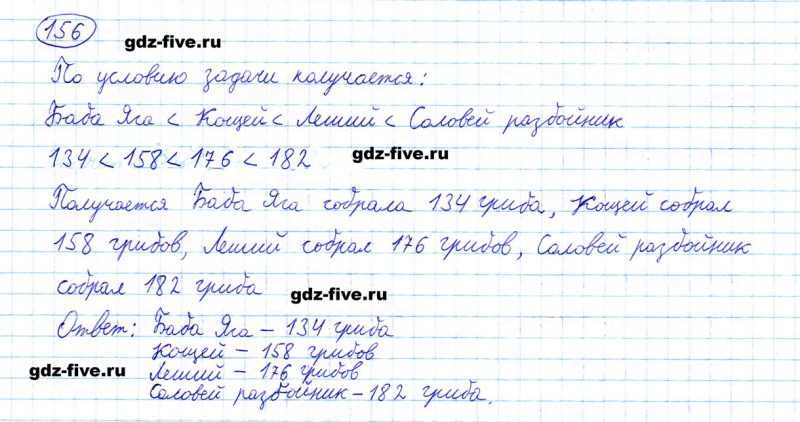 156 gdz-five.ru
По условию задачи получается:
Баба Яга < Кощей < Леший < Соловей разбойник
134 < 158 < 176 < 182 gdz-five.ru
Получается Баба Яга собрала 134 гриба, Кощей собрал
158 грибов, Леший собрал 176 грибов, Соловей разбойник
собрал 182 гриба gdz-five.ru
Ответ: Баба Яга – 134 гриба
Кощей – 158 грибов
gdz-five.ru Леший – 176 грибов
Соловей разбойник – 182 гриба.